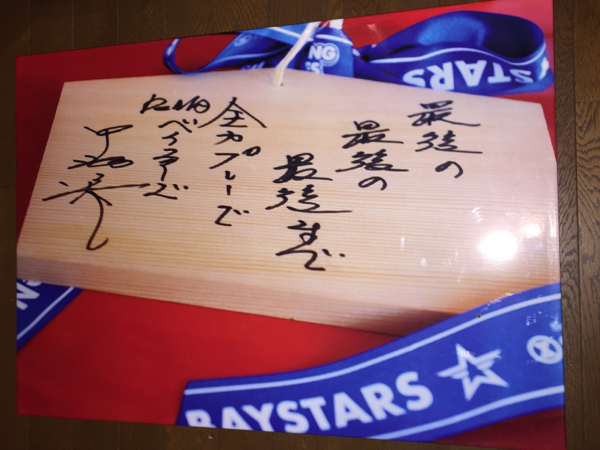 最後の
最後の
最後まで
全力プレーで
DeNA
ベイスターズ
中畑清
STARS
STARS
BAYSTARS